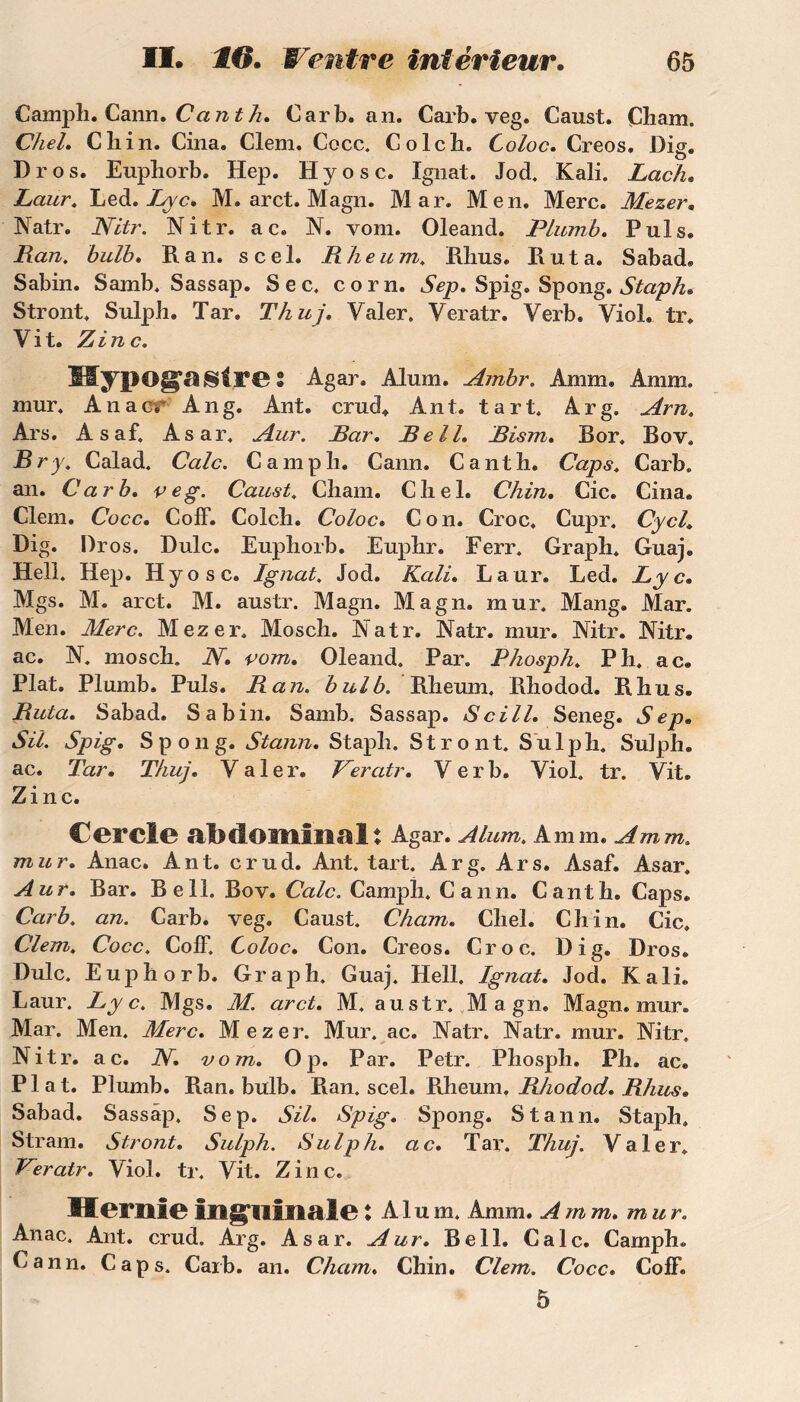 II. 16. Ventre intérieur. 65
Camph. Cann. Canth. Carb. an. Carb. veg. Caust. Cham.
Chel. Chin. Cina. Clem. Cocc. Colch. Coloc. Creos. Dig.
Dros. Euphorb. Hep. Hyosc. Ignat. Jod. Kali. Lach.
Laur. Led. Lyc. M. arct. Magn. Mar. Men. Merc. Mezer.
Natr. Nitr. Nitr. ac. N. vom. Oleand. Plumb. Puls.
Ran. bulb. Ran. scel. Rheum. Rhus. Ruta. Sabad.
Sabin. Samb. Sassap. Sec. corn. Sep. Spig. Spong. Staph.
Stront. Sulph. Tar. Thuj. Valer. Veratr. Verb. Viol. tr.
Vit. Zinc.
Hypogastre: Agar. Alum. Ambr. Amm. Amm.
mur. Anacr Ang. Ant. crud. Ant. tart. Arg. Arn.
Ars. Asaf. Asar. Aur. Bar. Bell. Bism. Bor. Bov.
Bry. Calad. Calc. Camph. Cann. Canth. Caps. Carb.
an. Carb. veg. Caust. Cham. Chel. Chin. Cic. Cina.
Clem. Cocc. Coff. Colch. Coloc. Con. Croc. Cupr. Cycl.
Dig. Dros. Dulc. Euphorb. Euphr. Ferr. Graph. Guaj.
Hell. Hep. Hyosc. Ignat. Jod. Kali. Laur. Led. Lyc.
Mgs. M. arct. M. austr. Magn. Magn. mur. Mang. Mar.
Men. Merc. Mezer. Mosch. Natr. Natr. mur. Nitr. Nitr.
ac. N. mosch. N. vom. Oleand. Par. Phosph. Ph. ac.
Plat. Plumb. Puls. Ran. bulb. Rheum. Rhodod. Rhus.
Ruta. Sabad. Sabin. Samb. Sassap. Scill. Seneg. Sep.
Sil. Spig. Spong. Stann. Staph. Stront. Sulph. Sulph.
ac. Tar. Thuj. Valer. Veratr. Verb. Viol. tr. Vit.
Zinc.
Cercle abdominal: Agar. Alum. Amm. Amm.
mur. Anac. Ant. crud. Ant. tart. Arg. Ars. Asaf. Asar.
Aur. Bar. Bell. Bov. Calc. Camph. Cann. Canth. Caps.
Carb. an. Carb. veg. Caust. Cham. Chel. Chin. Cic.
Clem. Cocc. Coff. Coloc. Con. Creos. Croc. Dig. Dros.
Dulc. Euphorb. Graph. Guaj. Hell. Ignat. Jod. Kali.
Laur. Lyc. Mgs. M. arct. M. austr. Magn. Magn. mur.
Mar. Men. Merc. Mezer. Mur. ac. Natr. Natr. mur. Nitr.
Nitr. ac. N. vom. Op. Par. Petr. Phosph. Ph. ac.
Plat. Plumb. Ran. bulb. Ran. scel. Rheum. Rhodod. Rhus.
Sabad. Sassap. Sep. Sil. Spig. Spong. Stann. Staph.
Stram. Stront. Sulph. Sulph. ac. Tar. Thuj. Valer.
Veratr. Viol. tr. Vit. Zinc.
Hernie inguinale: Alum. Amm. Amm. mur.
Anac. Ant. crud. Arg. Asar. Aur. Bell. Calc. Camph.
Cann. Caps. Carb. an. Cham. Chin. Clem. Cocc. Coff.
5